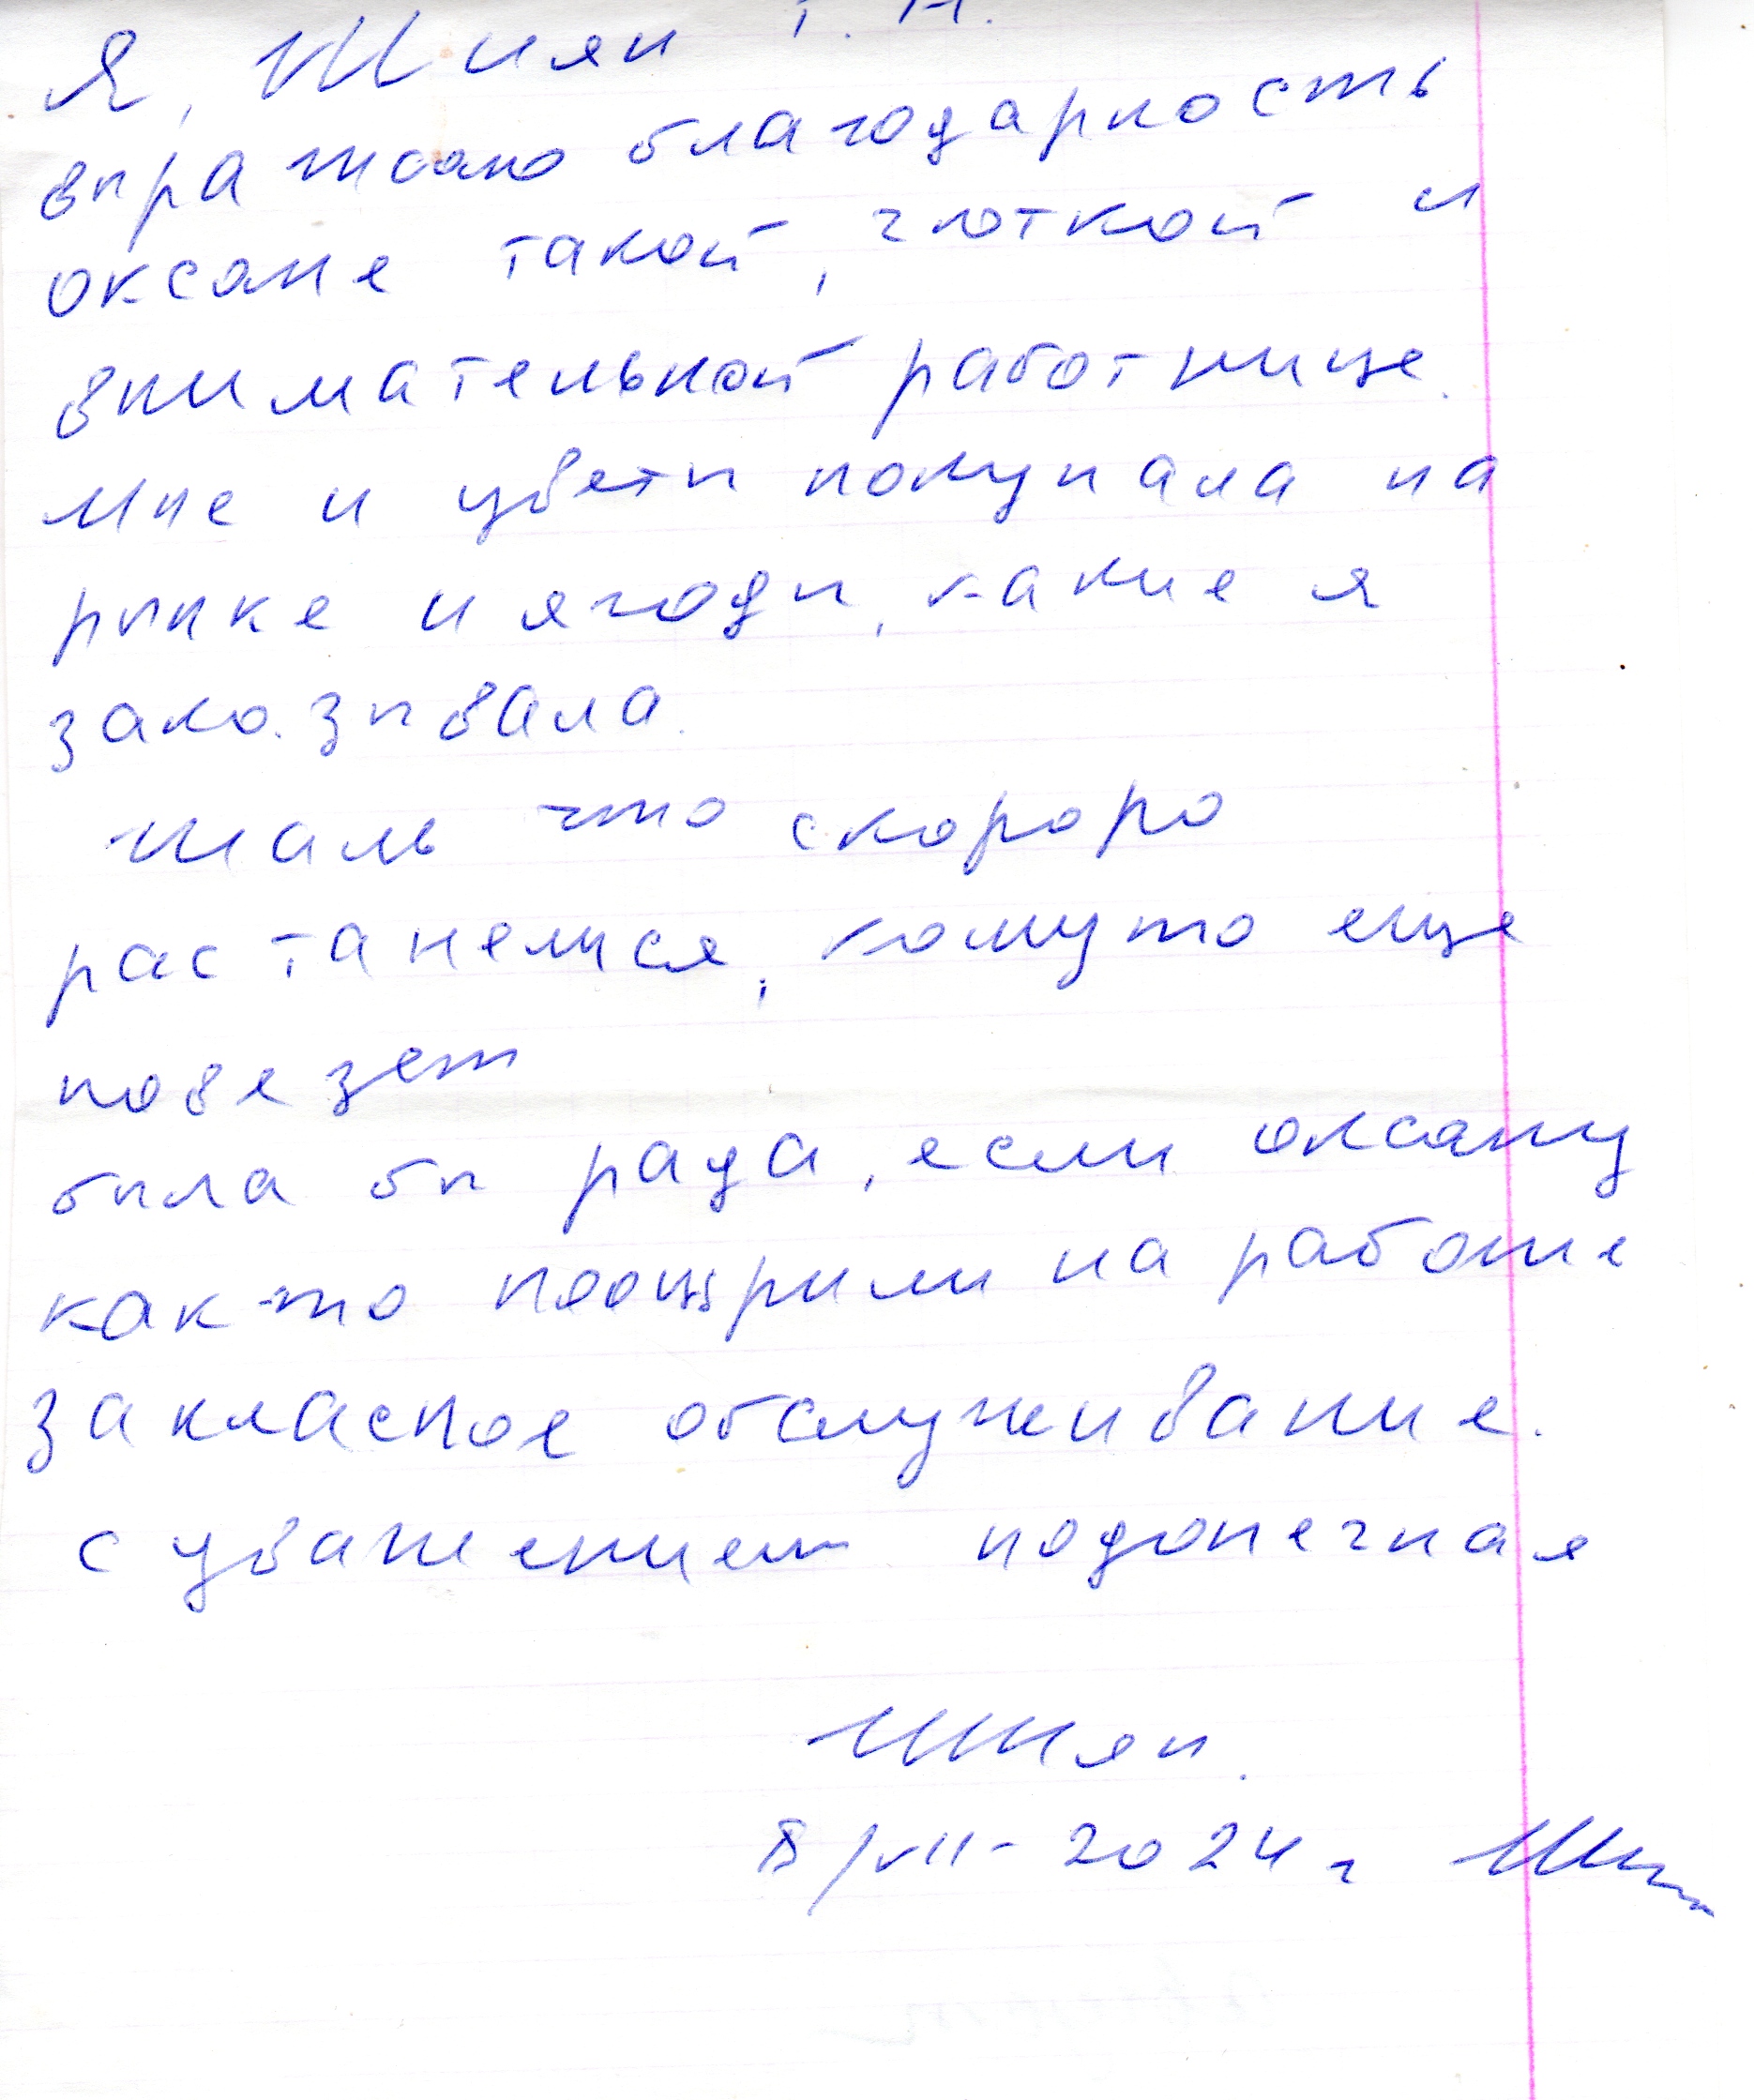 Я, Шиян Т. Н.
выражаю благодарность
Оксане такой, чюткой и
внимательной работнице.
мне и цветы покупала на
рынке и ягоды, какие я
заказывала.
Жаль что скороро
растанемся, кому то еще
повезет
была бы рада, если Оксану
как-то поощрили на работе
за класное обслуживание.
с уважением подопечная
Шиян.
8/VII-2024 г